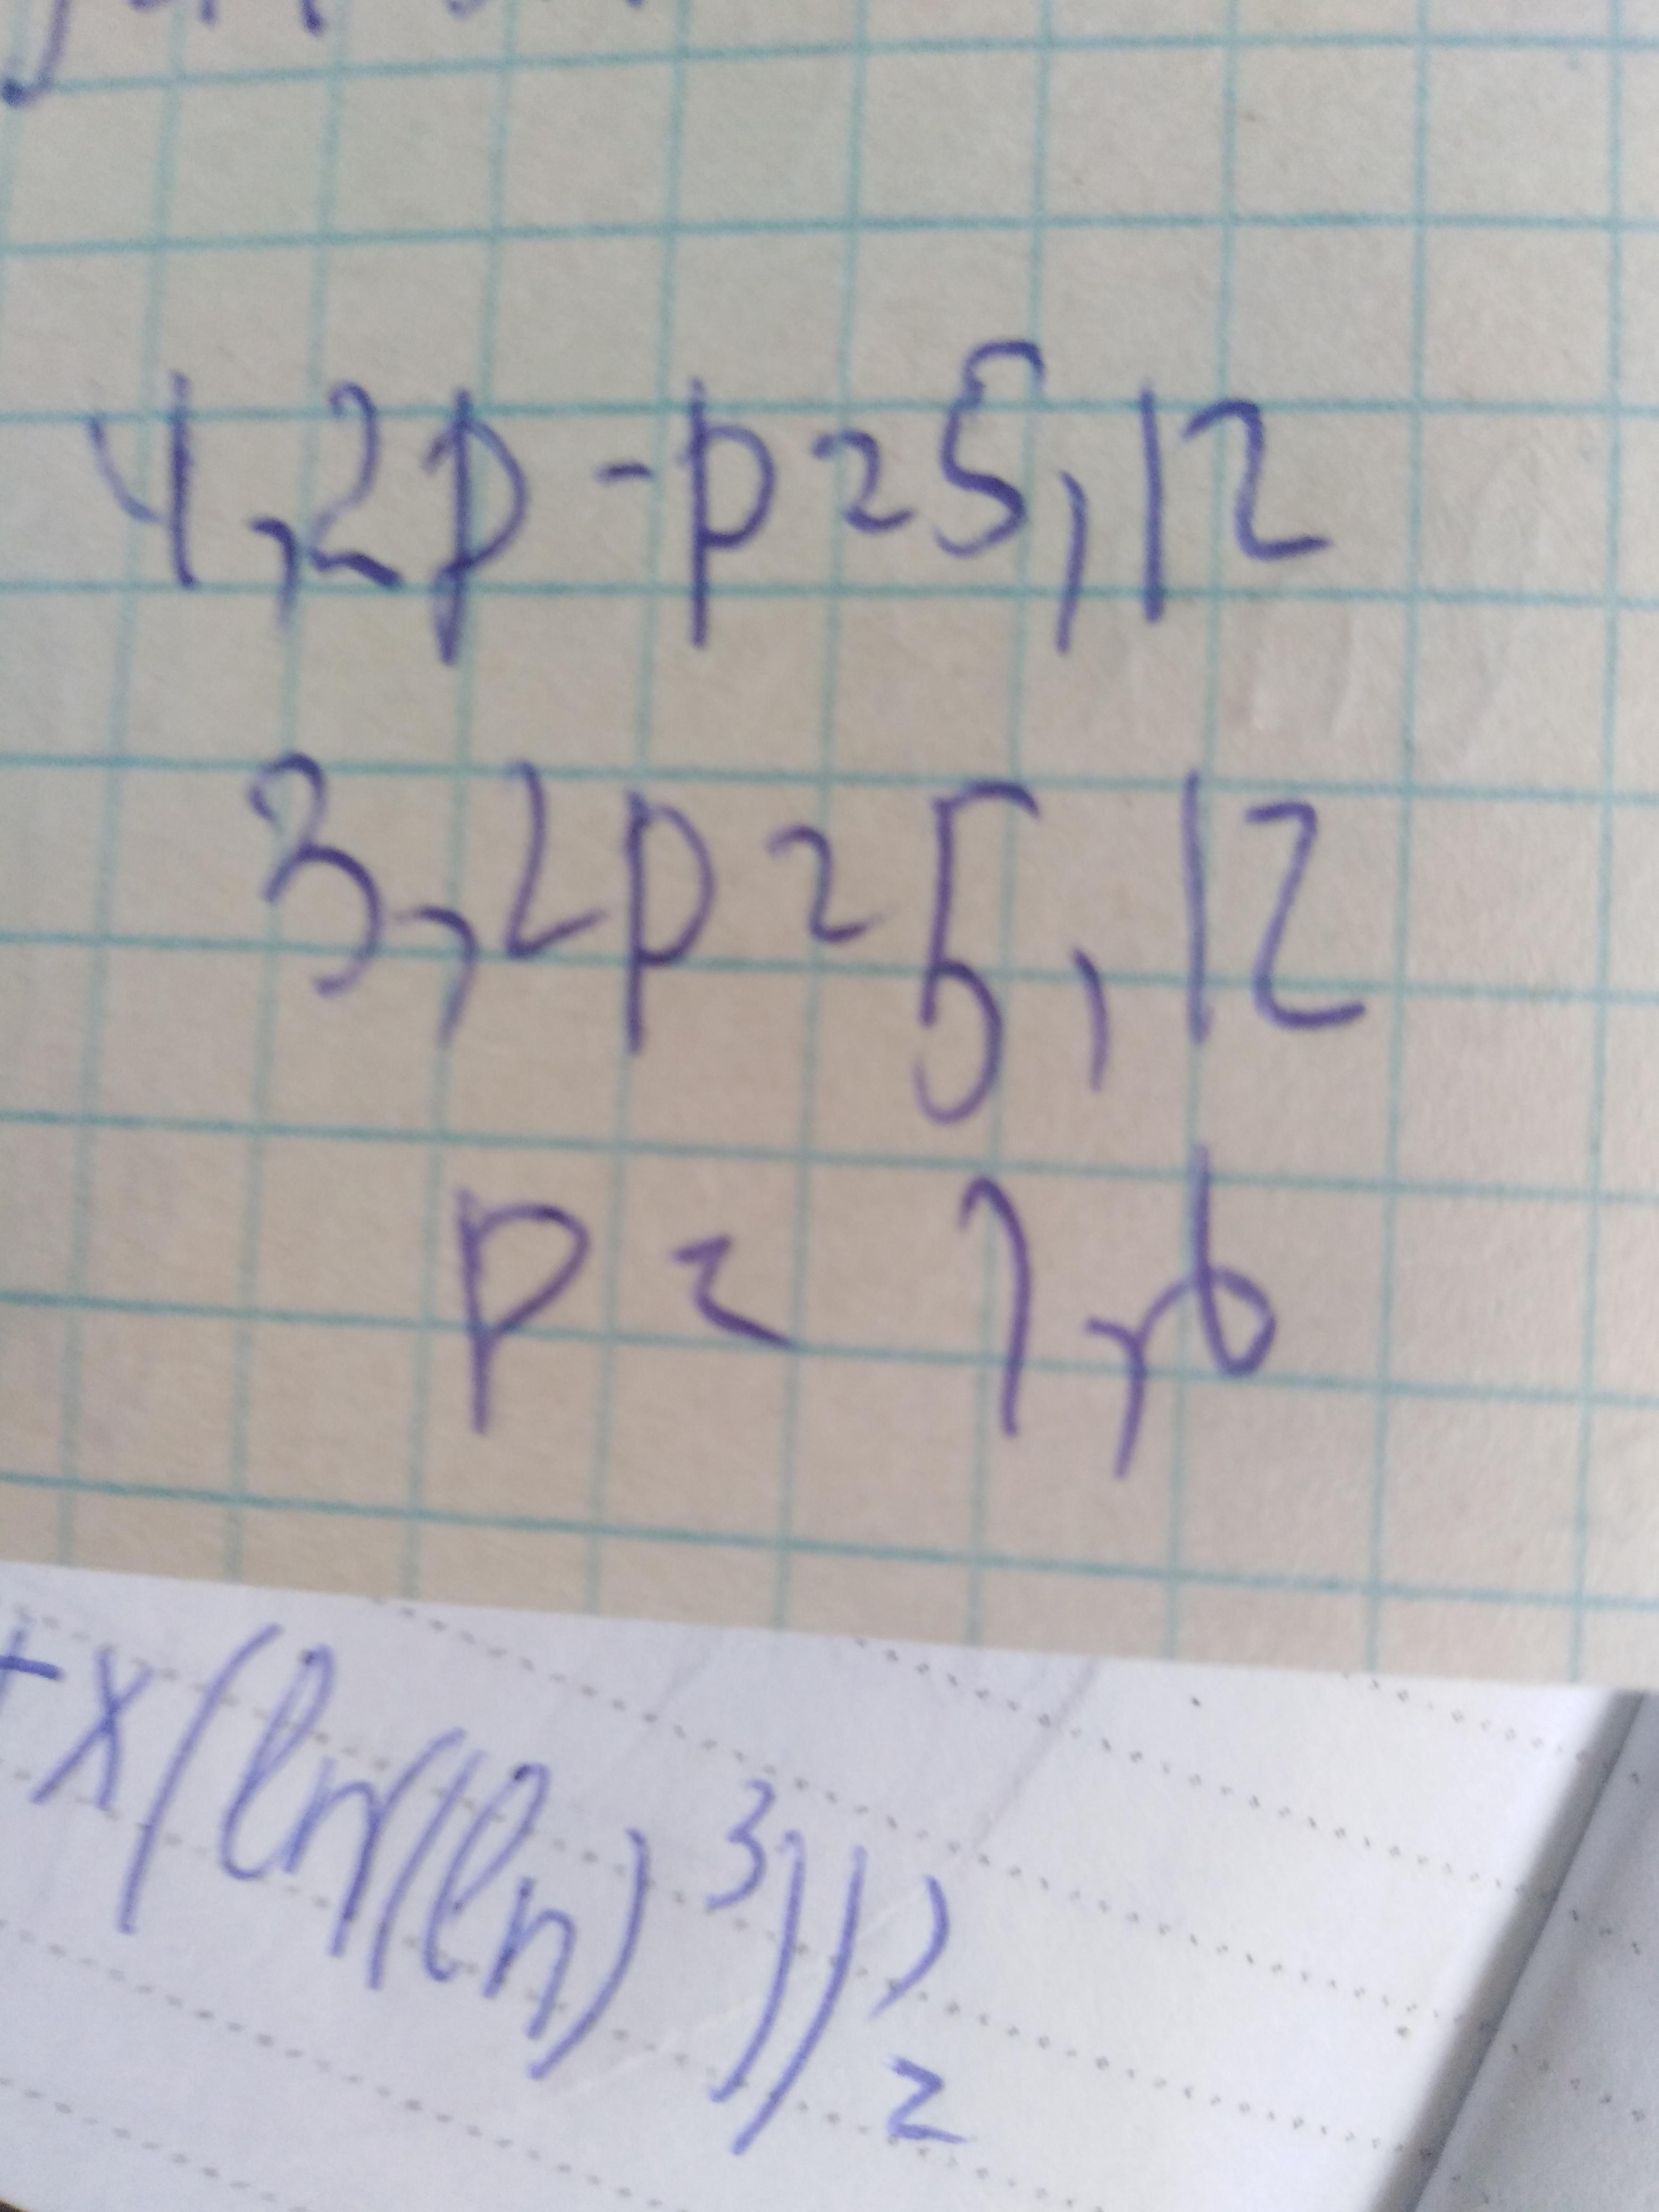 4,2p - p = 5,12
3,2p = 5,12
p = 1,6
+ x (ln((ln)³))' =